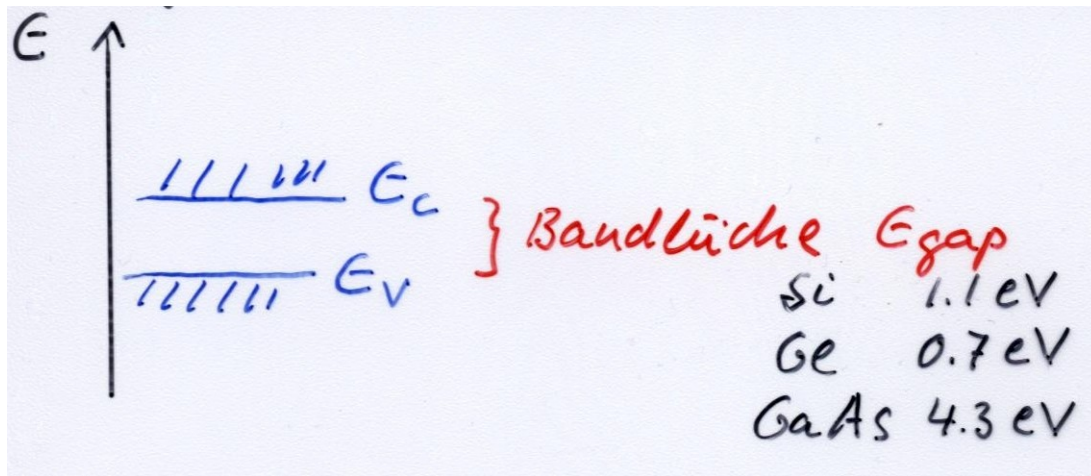 E
Ec
Ev
Bandlücke Egap
Si 1.1 eV
Ge 0.7 eV
GaAs 4.3 eV